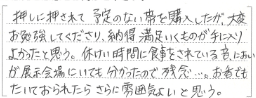 押しに押されて 予定のない帯を購入したが、大変
お勉強してくださり、納得 満足いくものが手に入り
よかったと思う。休けい時間に食事をされている音、におい
が展示会場にいても分かったので残念…。お香でも
たいておられたら さらに雰囲気よいと思う。